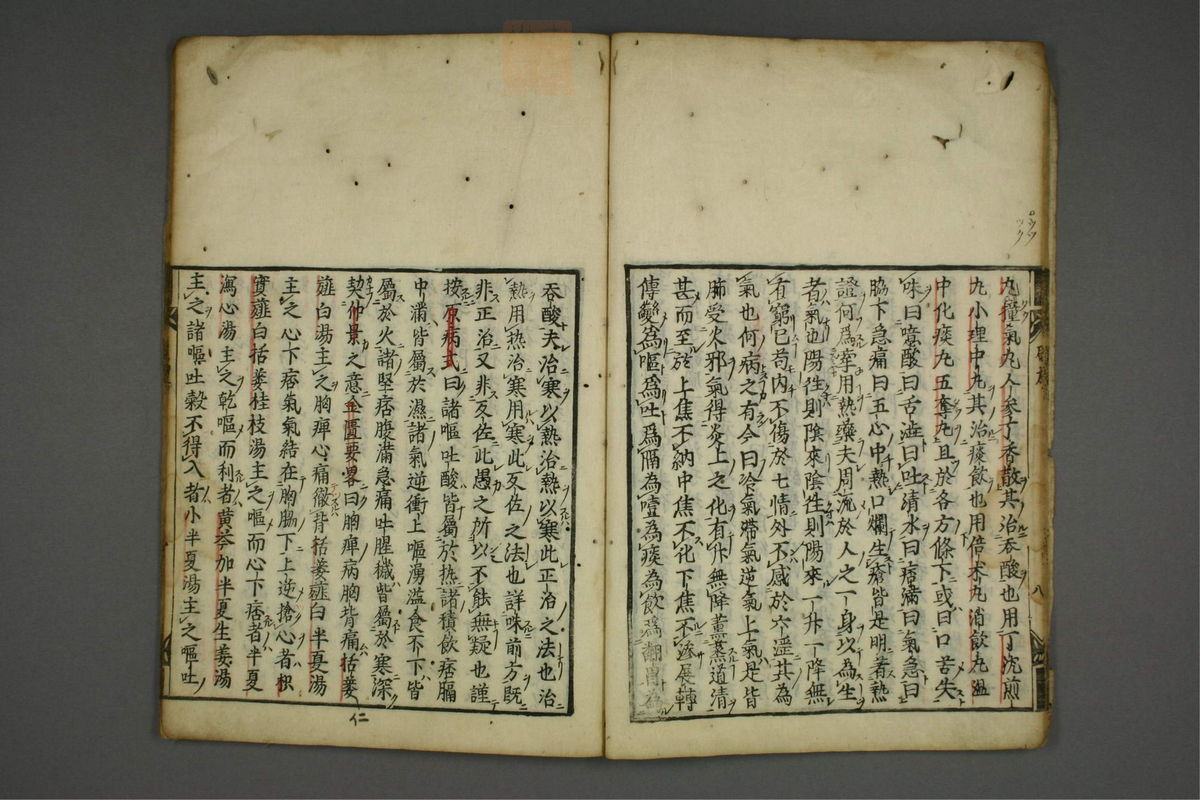 丸撞氣丸人參丁香散其治吞酸也用丁沈煎
丸小理中丸其治痰飲也用倍朮丸消飲丸溫
中化痰丸五套丸且於各方條下或曰口苦失
味曰噫酸曰舌澁曰吐清水曰痞滿曰氣急曰
脇下急痛曰五心中熱口爛生瘡皆是明著熱
證何爲率用熱藥夫周流於人之一身以爲生
者氣也陽徃則陰來陰徃則陽來一升一降無
有窮已苟内不傷於七情外不感於六淫其爲
氣也何病之有今曰冷氣滯氣逆氣上氣是皆
肺受火邪氣得炎上之化有升無降薰蒸道清
甚而至於上焦不納中焦不化下焦不滲展轉
傳變爲嘔爲吐爲膈爲噎爲痰爲飲爲翻胃爲
吞酸夫治寒以熱治熱以寒此正治之法也治
熱用熱治寒用寒此反佐之法也詳味前方既
非正治又非反佐此愚之所以不能無疑也謹
按原病式曰諸嘔吐酸皆屬於熱諸積飲痞膈
中滿皆屬於濕諸氣逆衝上嘔湧溢食不下皆
屬於火諸堅痞腹滿急痛吐腥穢皆屬於寒深
契仲景之意金匱要畧曰胸痺病胸背痛括蔞
薤白湯主之胸痺心痛徹背括蔞薤白半夏湯
主之心下痞氣氣結在胸脇下上逆搶心者枳
實薤白括蔞桂枝湯主之嘔而心下痞者半夏
瀉心湯主之乾嘔而利者黄芩加半夏生姜湯
主之諸嘔吐穀不得入者小半夏湯主之嘔吐
八
仁